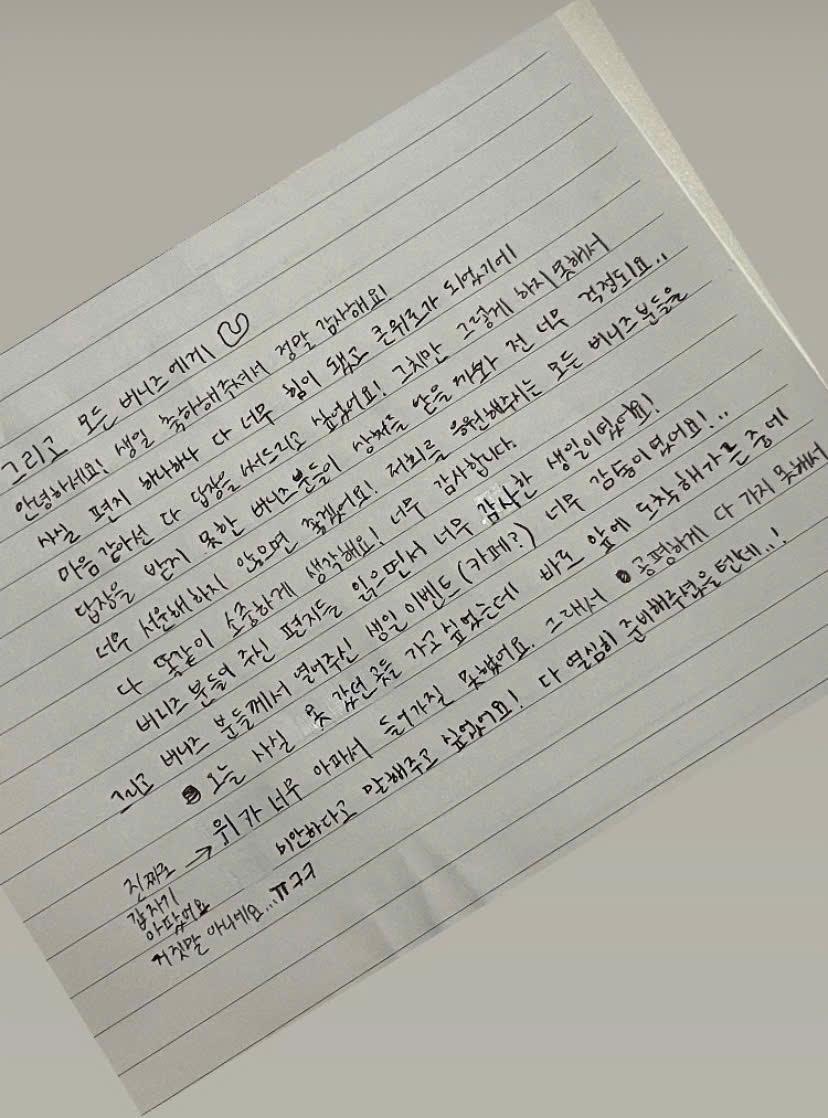 그리고 모든 버니즈에게
안녕하세요! 생일 축하해주셔서 정말 감사해요!
사실 편지 하나하나 다 너무 힘이 됐고 큰위로가 되었기에
마음 같아선 다 답장을 써드리고 싶었어요! 그치만 그렇게 하지 못해서
답장을 받지 못한 버니즈분들이 상처를 받을까봐 전 너무 걱정되요..
너무 서운해하지 않으면 좋겠어요! 저희를 응원해주시는 모든 버니즈분들을
다 똑같이 소중하게 생각해요! 너무 감사합니다.
버니즈 분들이 주신 편지들 읽으면서 너무 감사한 생일이었어요!
그리고 버니즈 분들께서 열어주신 생일 이벤트(카페?) 너무 감동이었어요!..
오늘 사실 못 갔던 곳들 가고싶었는데 바로 앞에 도착해가는 중에
위가 너무 아파서 들어가질 못했어요. 그래서 공평하게 다 가지 못해서
미안하다고 말해주고 싶었어요! 다 열심히 준비해주셨을텐데..!
진짜로 →
갑자기
아팠어요
거짓말 아니에요...ㅠㅋㅋ